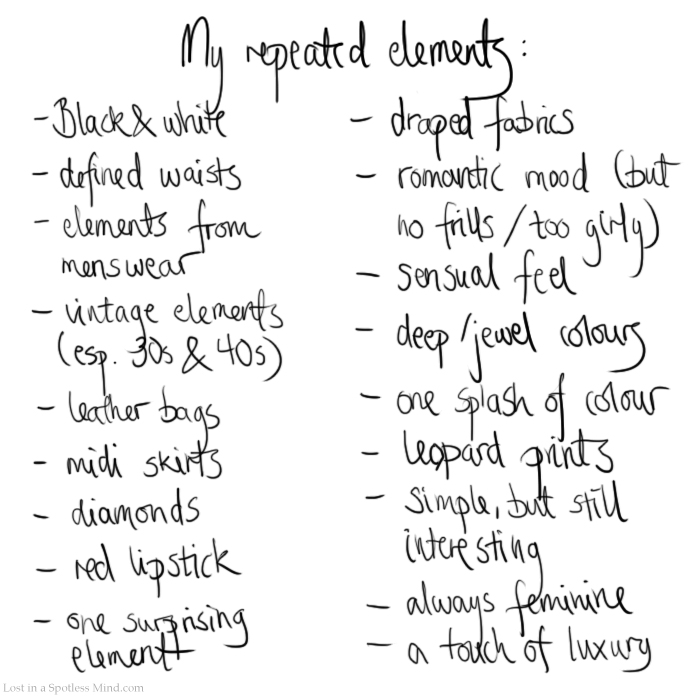 My repeated elements:
- Black & white
- defined waists
- elements from
menswear
- vintage elements
(esp. 30s & 40s)
- leather bags
- midi skirts
- diamonds
- red lipstick
- one surprising
element
- draped fabrics
- romantic mood (but
no frills / too girly)
- sensual feel
- deep / jewel colours
- one splash of colour
- leopard prints
- simple, but still
interesting
- always feminine
- a touch of luxury
Lost in a Spotless Mind.com